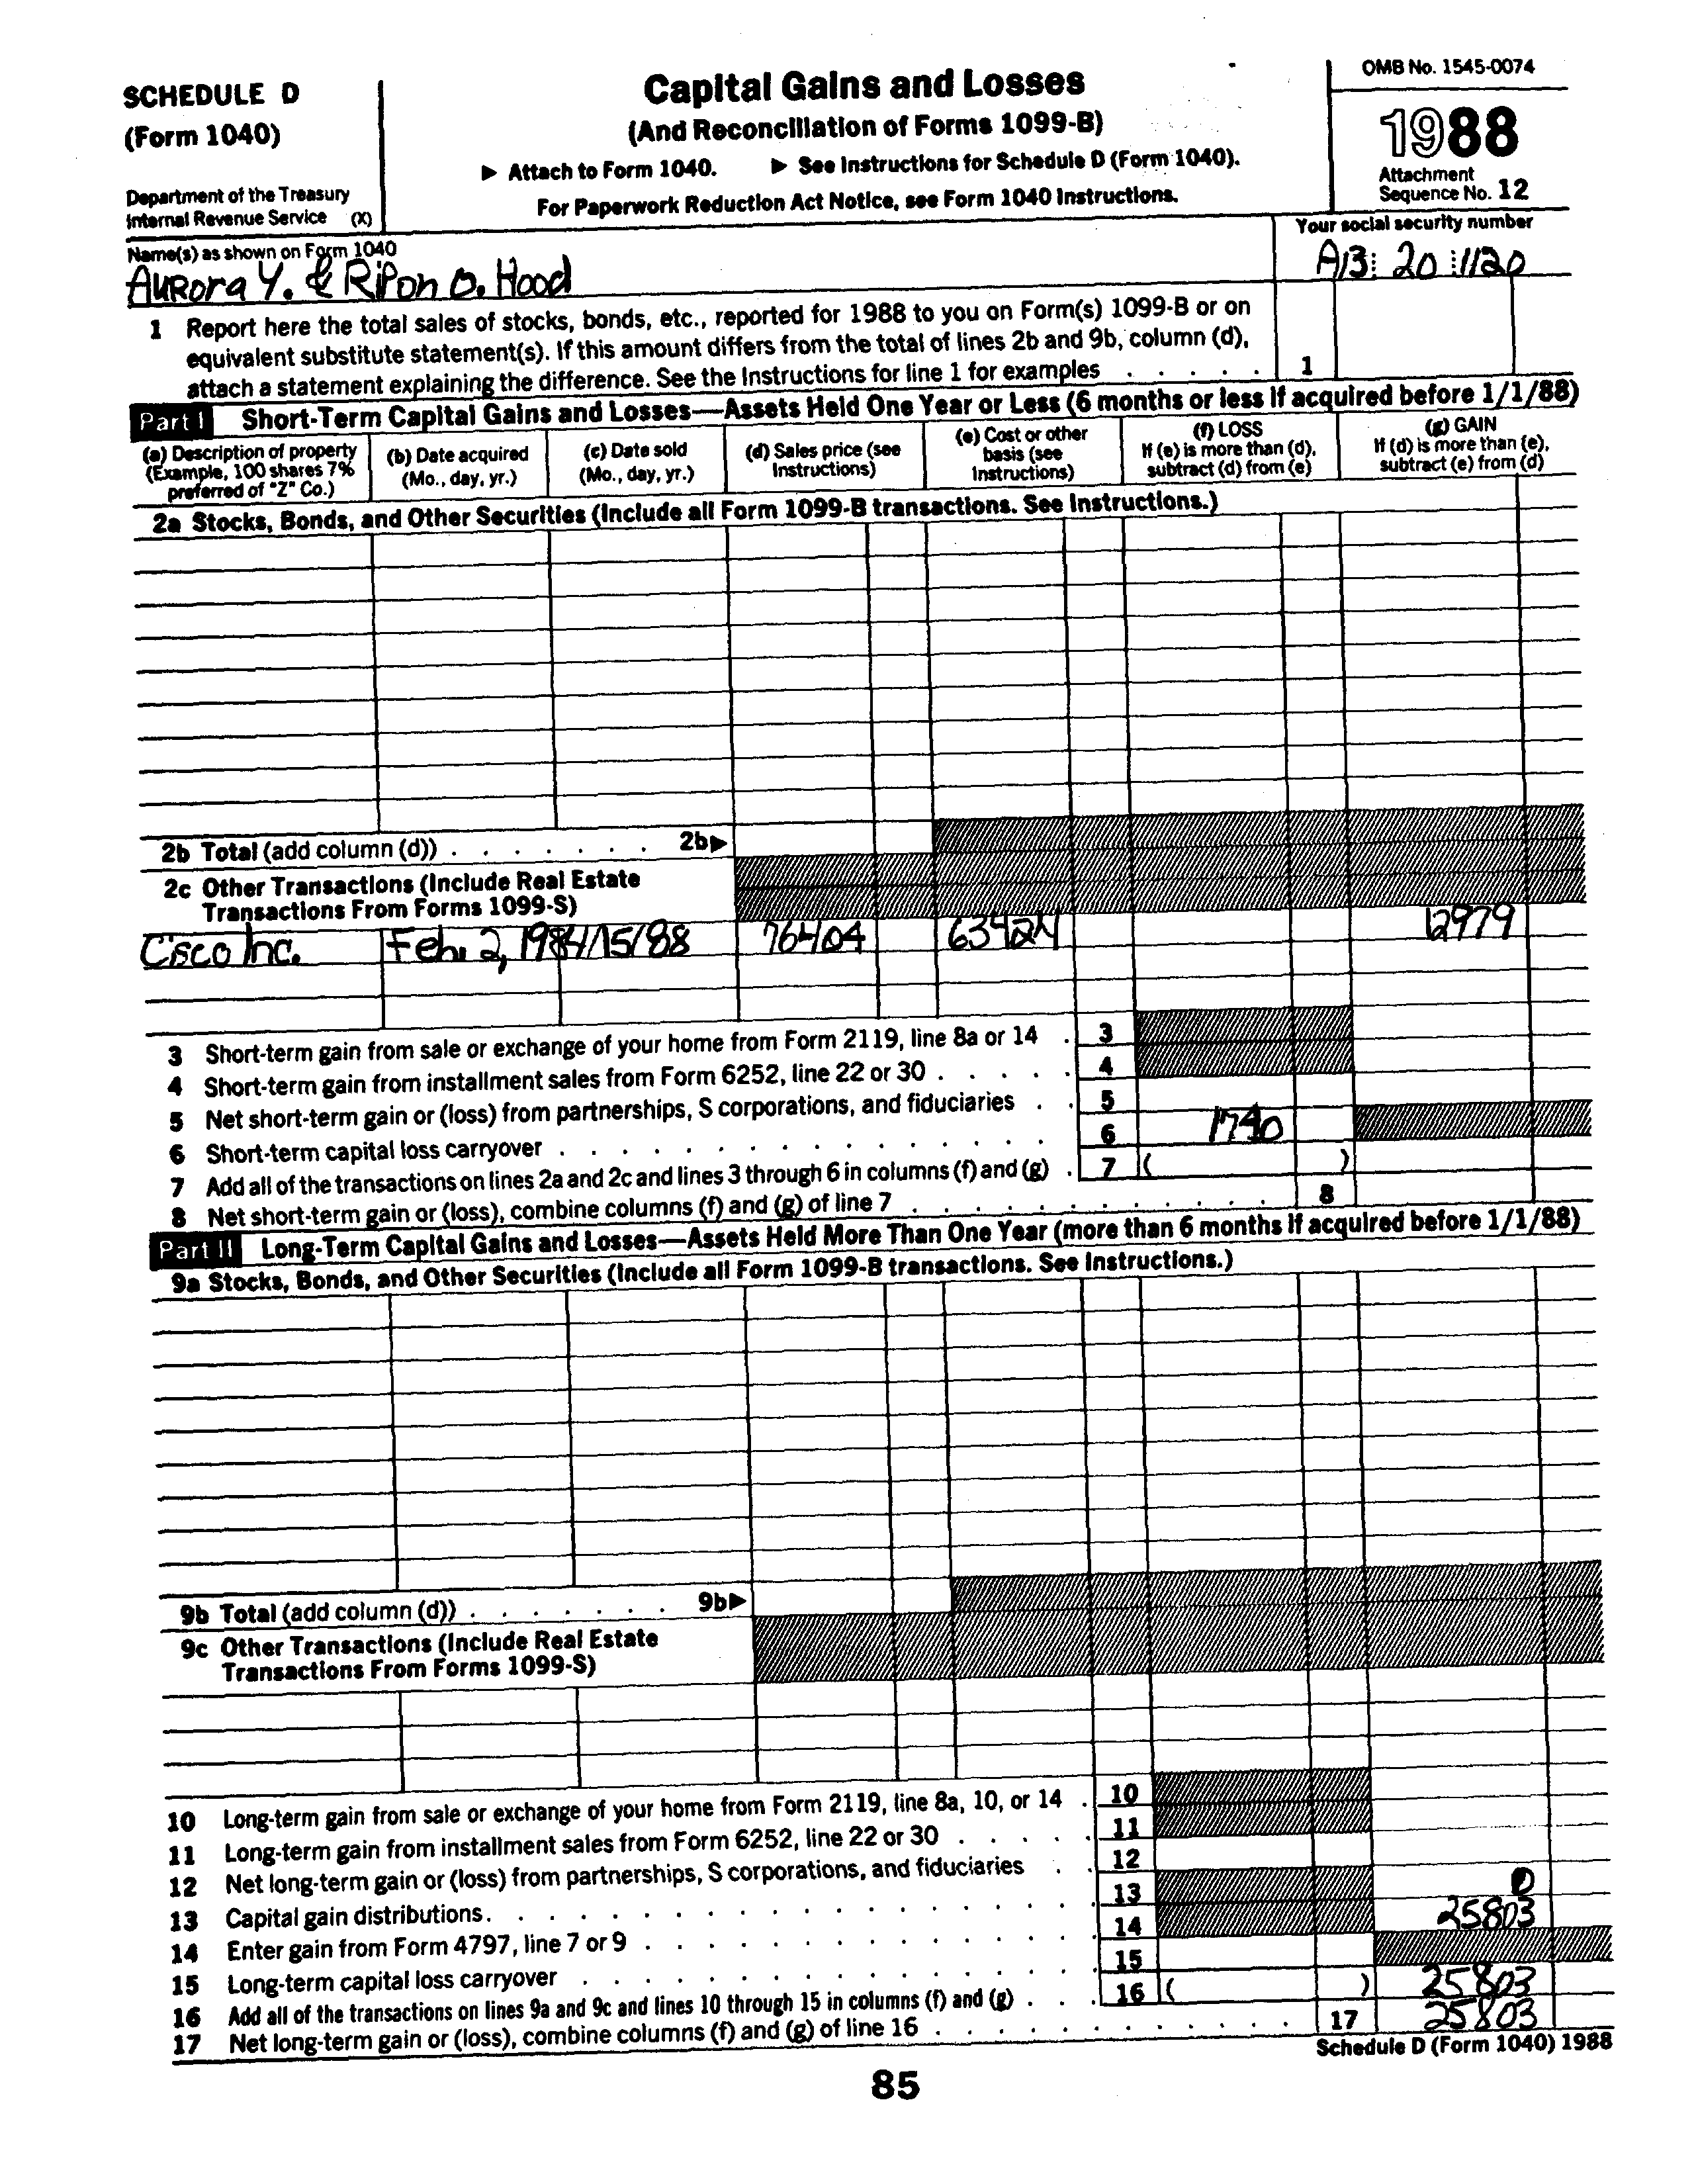 SCHEDULE D
(Form 1040)
Department of the Treasury
Internal Revenue Service (X)
Capital Gains and Losses
(And Reconciliation of Forms 1099-B)
▶ Attach to Form 1040. ▶ See Instructions for Schedule D (Form 1040).
For Paperwork Reduction Act Notice, see Form 1040 Instructions.
OMB No. 1545-0074
1988
Attachment
Sequence No. 12
Name(s) as shown on Form 1040
Aurora Y. & Ripon O. Hood
Your social security number
A13 20 1120
1 Report here the total sales of stocks, bonds, etc., reported for 1988 to you on Form(s) 1099-B or on
equivalent substitute statement(s). If this amount differs from the total of lines 2b and 9b, column (d),
attach a statement explaining the difference. See the Instructions for line 1 for examples . . . . . 1
Part I Short-Term Capital Gains and Losses—Assets Held One Year or Less (6 months or less if acquired before 1/1/88)
(a) Description of property
(Example, 100 shares 7%
preferred of "Z" Co.)
(b) Date acquired
(Mo., day, yr.)
(c) Date sold
(Mo., day, yr.)
(d) Sales price (see
Instructions)
(e) Cost or other
basis (see
Instructions)
(f) LOSS
If (e) is more than (d),
subtract (d) from (e)
(g) GAIN
If (d) is more than (e),
subtract (e) from (d)
2a Stocks, Bonds, and Other Securities (Include all Form 1099-B transactions. See Instructions.)
2b Total (add column (d)) . . . . . . . 2b▶
2c Other Transactions (Include Real Estate
Transactions From Forms 1099-S)
Cisco Inc. Feb. 2, 15/88 76404 63424 12979
3 Short-term gain from sale or exchange of your home from Form 2119, line 8a or 14 . 3
4 Short-term gain from installment sales from Form 6252, line 22 or 30 . . . . . 4
5 Net short-term gain or (loss) from partnerships, S corporations, and fiduciaries . . 5
6 Short-term capital loss carryover . . . . . . . . . . . . . . . 6 1740
7 Add all of the transactions on lines 2a and 2c and lines 3 through 6 in columns (f) and (g) . 7 ( )
8 Net short-term gain or (loss), combine columns (f) and (g) of line 7 . . . . . . . . . . . 8
Part II Long-Term Capital Gains and Losses—Assets Held More Than One Year (more than 6 months if acquired before 1/1/88)
9a Stocks, Bonds, and Other Securities (Include all Form 1099-B transactions. See Instructions.)
9b Total (add column (d)) . . . . . . . 9b▶
9c Other Transactions (Include Real Estate
Transactions From Forms 1099-S)
10 Long-term gain from sale or exchange of your home from Form 2119, line 8a, 10, or 14 . 10
11 Long-term gain from installment sales from Form 6252, line 22 or 30 . . . . . 11
12 Net long-term gain or (loss) from partnerships, S corporations, and fiduciaries . . 12
13 Capital gain distributions. . . . . . . . . . . . . . . . . . 13 0
14 Enter gain from Form 4797, line 7 or 9 . . . . . . . . . . . . . 14 25803
15 Long-term capital loss carryover . . . . . . . . . . . . . . . 15
16 Add all of the transactions on lines 9a and 9c and lines 10 through 15 in columns (f) and (g) . . . 16 ( ) 25803
17 Net long-term gain or (loss), combine columns (f) and (g) of line 16 . . . . . . . . . . . 17 25803
Schedule D (Form 1040) 1988
85